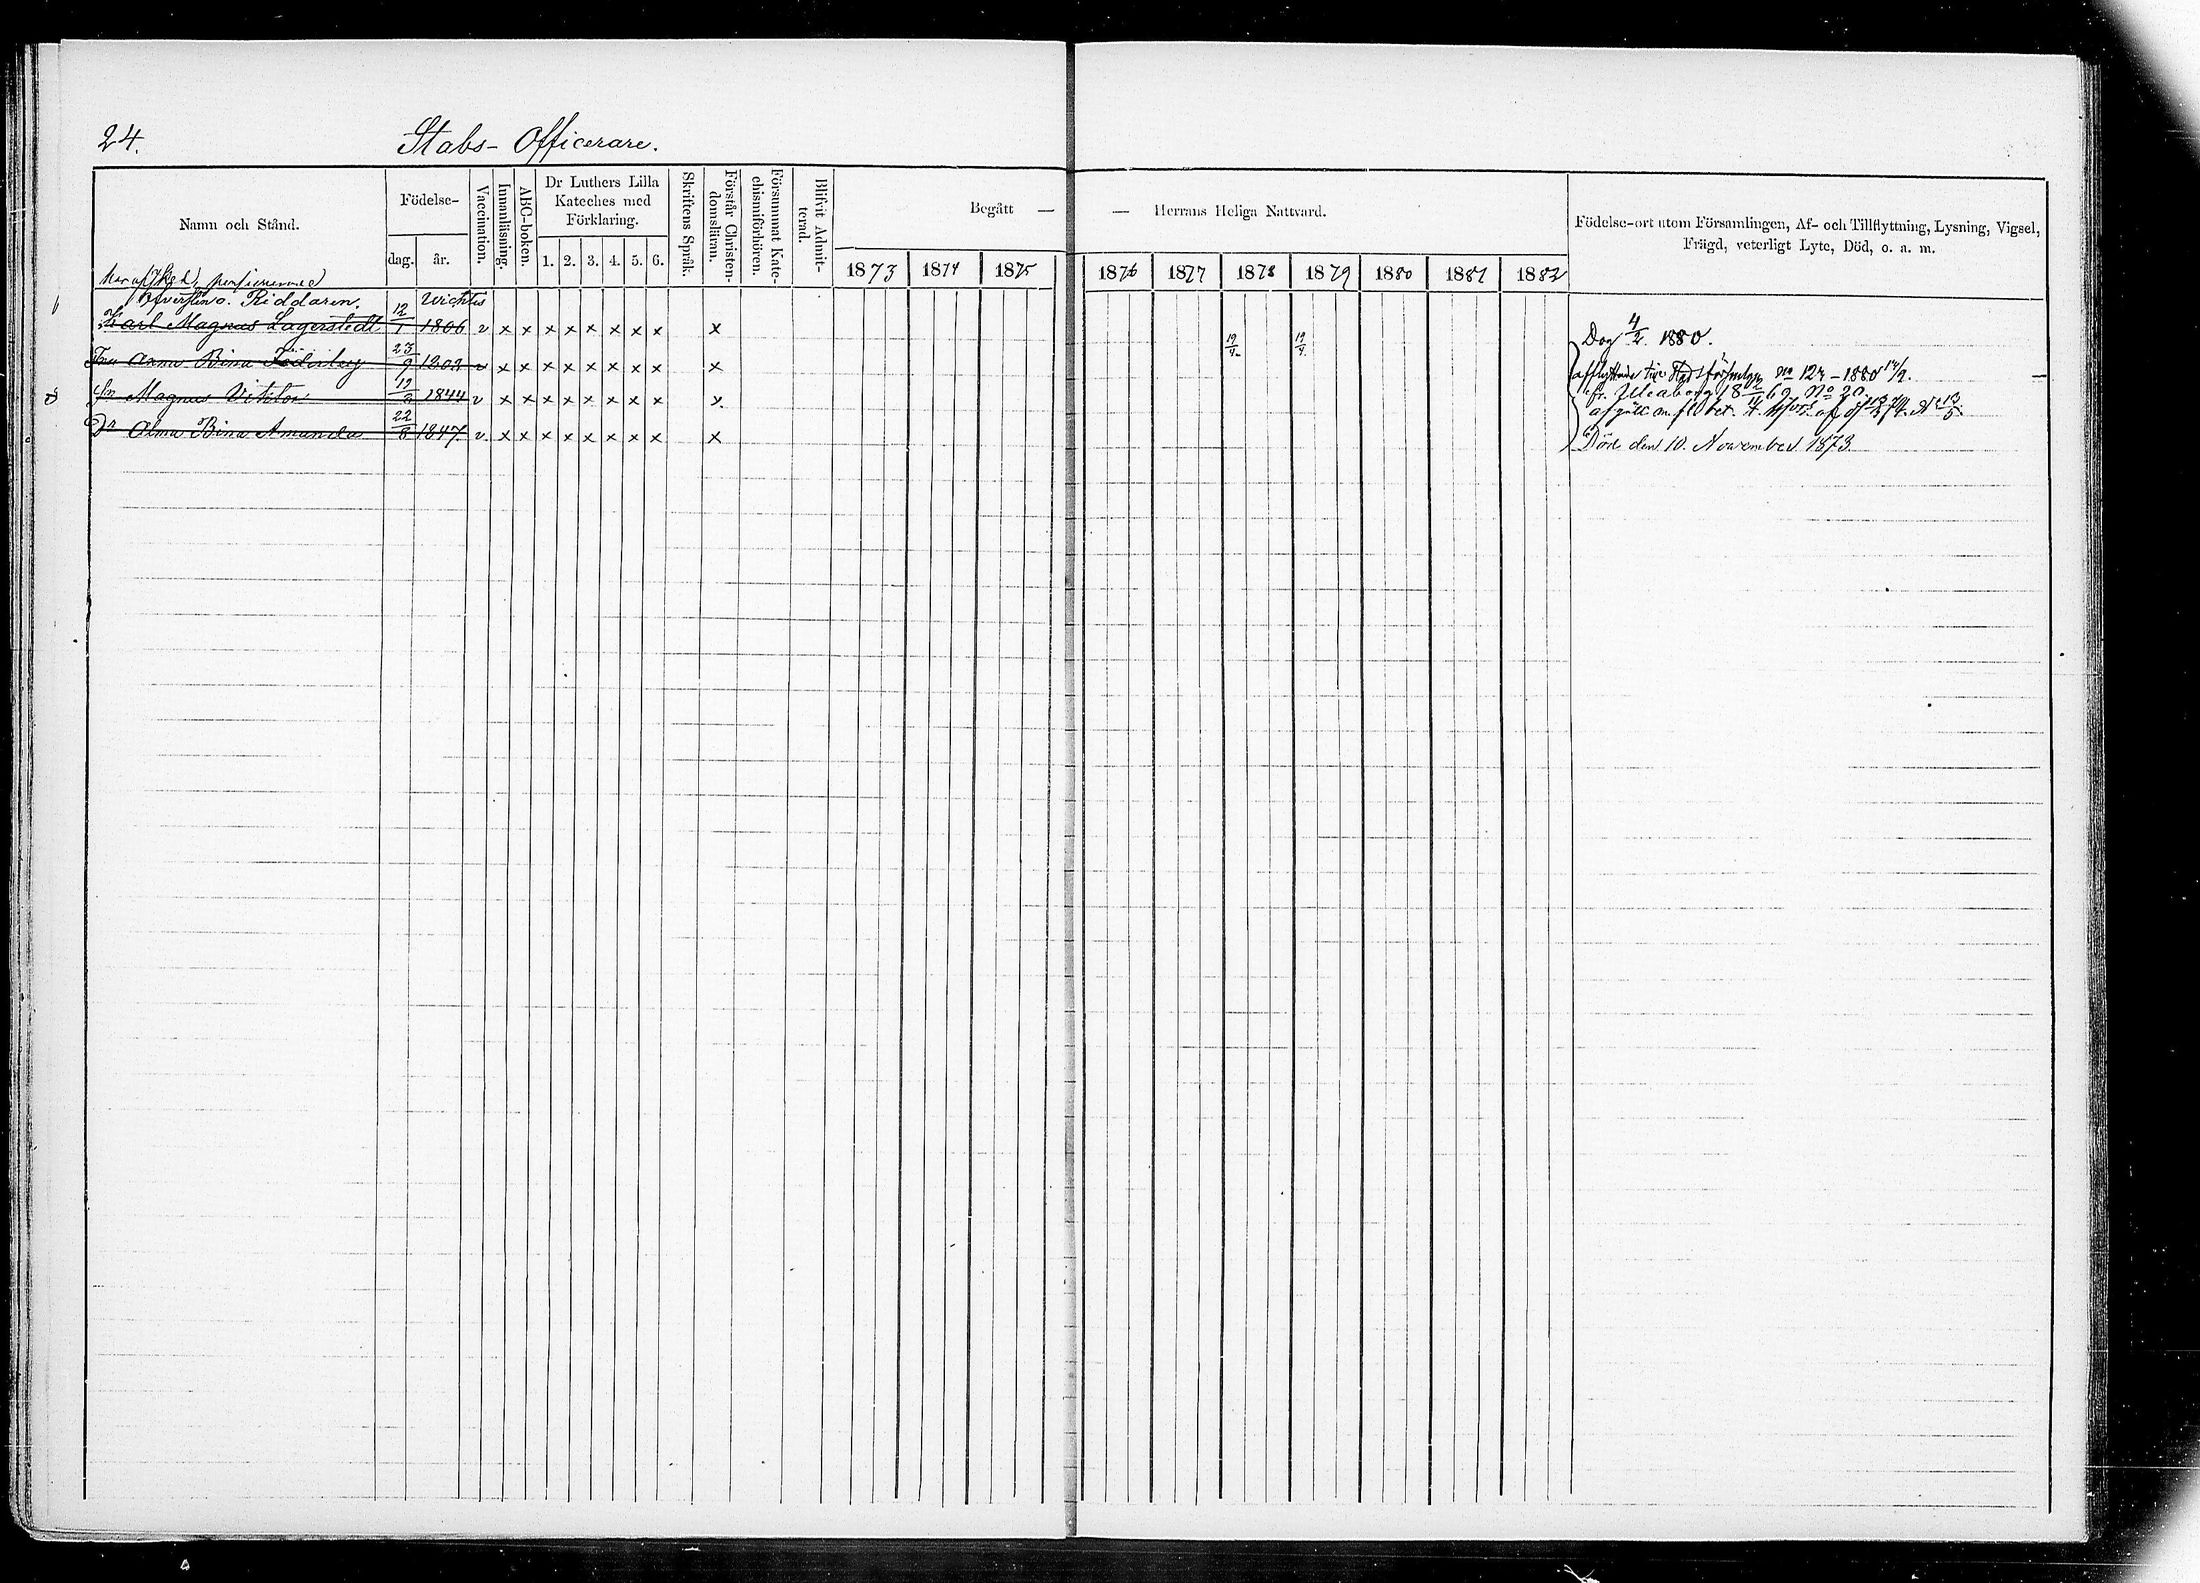 24.
Stabs- Officerare.
Namn och Stånd.
Födelse-
dag.
år.
Vaccination.
Innanläsning.
ABC-boken.
Dr Luthers Lilla
Kateches med
Förklaring.
1. 2. 3. 4. 5. 6.
Skriftens Språk.
Förstår Christen-
domsläran.
Försummat Kate-
chismiförhören.
Blifvit Admit-
terad.
Begått —
— Herrans Heliga Nattvard.
1873 1874 1875
1876 1877 1878 1879 1880 1881 1882
Födelse-ort utom Församlingen, Af- och Tillflyttning, Lysning, Vigsel,
Frägd, veterligt Lyte, Död, o. a. m.
pensionerade
Öfversten o. Riddaren. Wichtis
Karl Magnus Lagerstedt 12/1 1806 v x x x x x x x x x
19/4 19/4
Dog 4/2 1880.
Fru Anna Bina 23/9 v x x x x x x x x x
afflyttade No 127 - 1880
Sn Magnus Viktor 19 1844 v x x x x x x x x x
fr. Uleaborg No 20
Dr Alma Bina Amanda 22/8 1847. v x x x x x x x x x
Död den 10. November 1873.